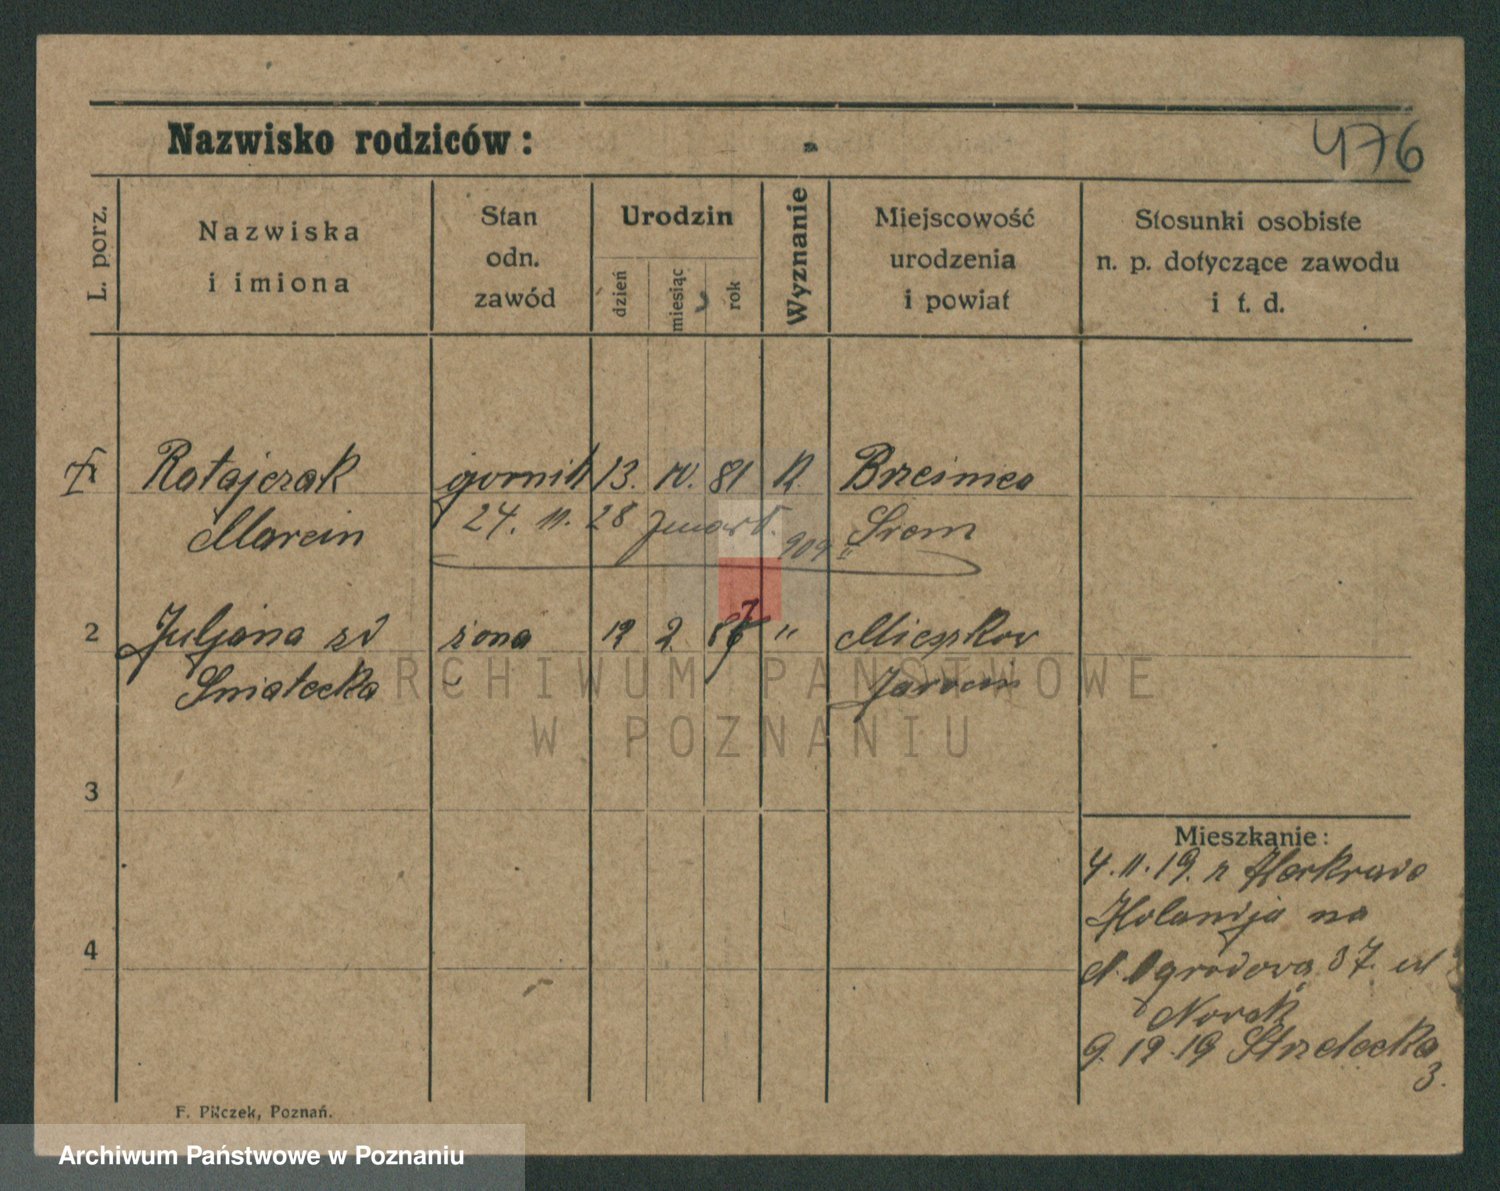 Nazwisko rodziców:
476
L. porz.
Nazwiska
i imiona
Stan
odn.
zawód
Urodzin
dzień
miesiąc
rok
Wyznanie
Miejscowość
urodzenia
i powiat
Stosunki osobiste
n. p. dotyczące zawodu
i t. d.
Ratajczak górnik 13. 10. 81 K
Marcin 24. 11. 28 Śrem
2 Juljana żona 12 2. 87 " Mieszkow
Jarocin
3
4
Mieszkanie:
4. 11. 19. z
Holandja na
Ogrodova 37.
Novak
9. 12. 19 Strzelecka
3.
F. Pilczek, Poznań.
ARCHIWUM PAŃSTWOWE
W POZNANIU
Archiwum Państwowe w Poznaniu